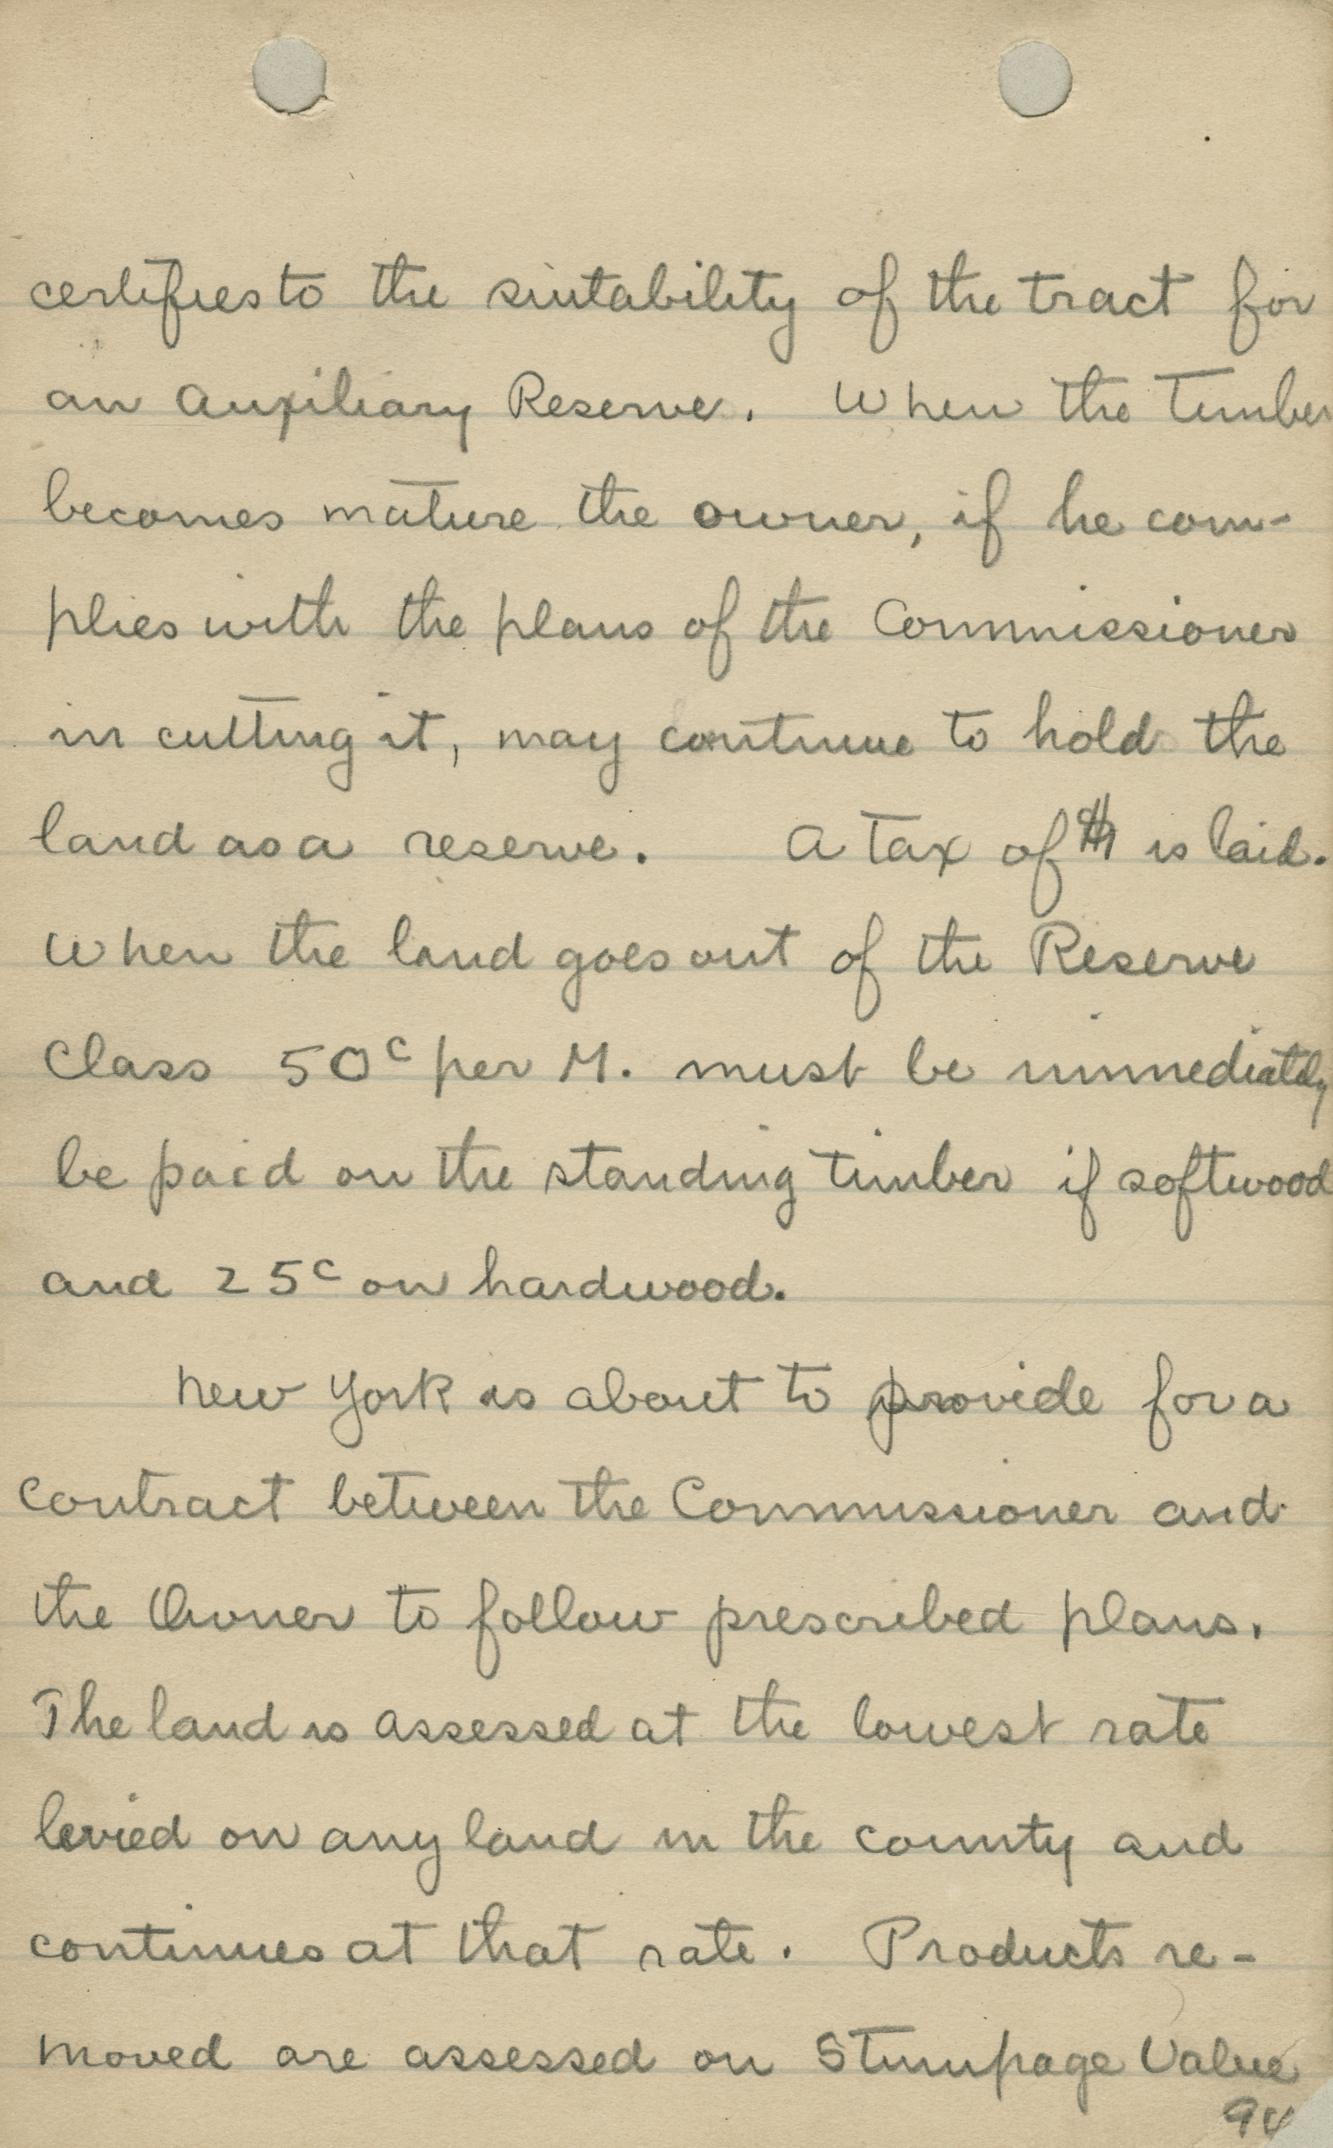 certifies to the suitability of the tract for
an Auxiliary Reserve. When the Timber
becomes mature the owner, if he com-
plies with the plans of the Commissioner
in cutting it, may continue to hold the
land as a reserve. A Tax of $1 is laid.
When the land goes out of the Reserve
Class 50c per M. must be immediately
be paid on the standing timber if softwood
and 25c on hardwood.
New York is about to provide for a
contract between the Commissioner and
the Owner to follow prescribed plans.
The land is assessed at the lowest rate
levied on any land in the county and
continues at that rate. Products re-
moved are assessed on Stumpage Value